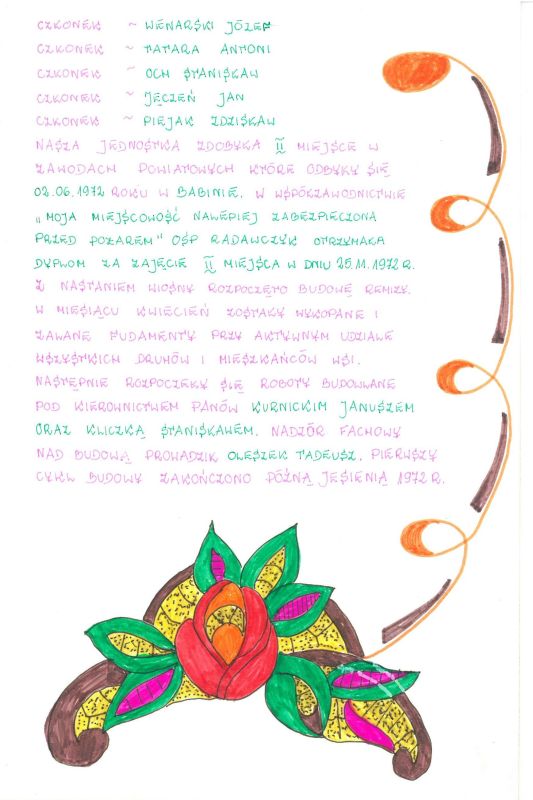 CZŁONEK ~ WENARSKI JÓZEF
CZŁONEK ~ TATARA ANTONI
CZŁONEK ~ OCH STANISŁAW
CZŁONEK ~ JĘCZEŃ JAN
CZŁONEK ~ PIEJAK ZDZISŁAW
NASZA JEDNOSTKA ZDOBYŁA II MIEJSCE W
ZAWODACH POWIATOWYCH KTÓRE ODBYŁY SIĘ
02.06.1972 ROKU W BABINIE. W WSPÓŁZAWODNICTWIE
„MOJA MIEJSCOWOŚĆ NAJLEPIEJ ZABEZPIECZONA
PRZED POŻAREM" OSP RADAWCZYK OTRZYMAŁA
DYPLOM ZA ZAJĘCIE II MIEJSCA W DNIU 25.11.1972 R.
Z NASTANIEM WIOSNY ROZPOCZĘTO BUDOWĘ REMIZY.
W MIESIĄCU KWIECIEŃ ZOSTAŁY WYKOPANE I
ZALANE FUDAMENTY PRZY AKTYWNYM UDZIALE
WSZYSTKICH DRUHÓW I MIESZKAŃCÓW WSI.
NASTĘPNIE ROZPOCZĘŁY SIĘ ROBOTY BUDOWLANE
POD KIEROWNICTWEM PANÓW KURNICKIM JANUSZEM
ORAZ KLICZKĄ STANISŁAWEM. NADZÓR FACHOWY
NAD BUDOWĄ PROWADZIŁ OLESZEK TADEUSZ. PIERWSZY
CYKL BUDOWY ZAKOŃCZONO PÓŹNĄ JESIENIĄ 1972 R.